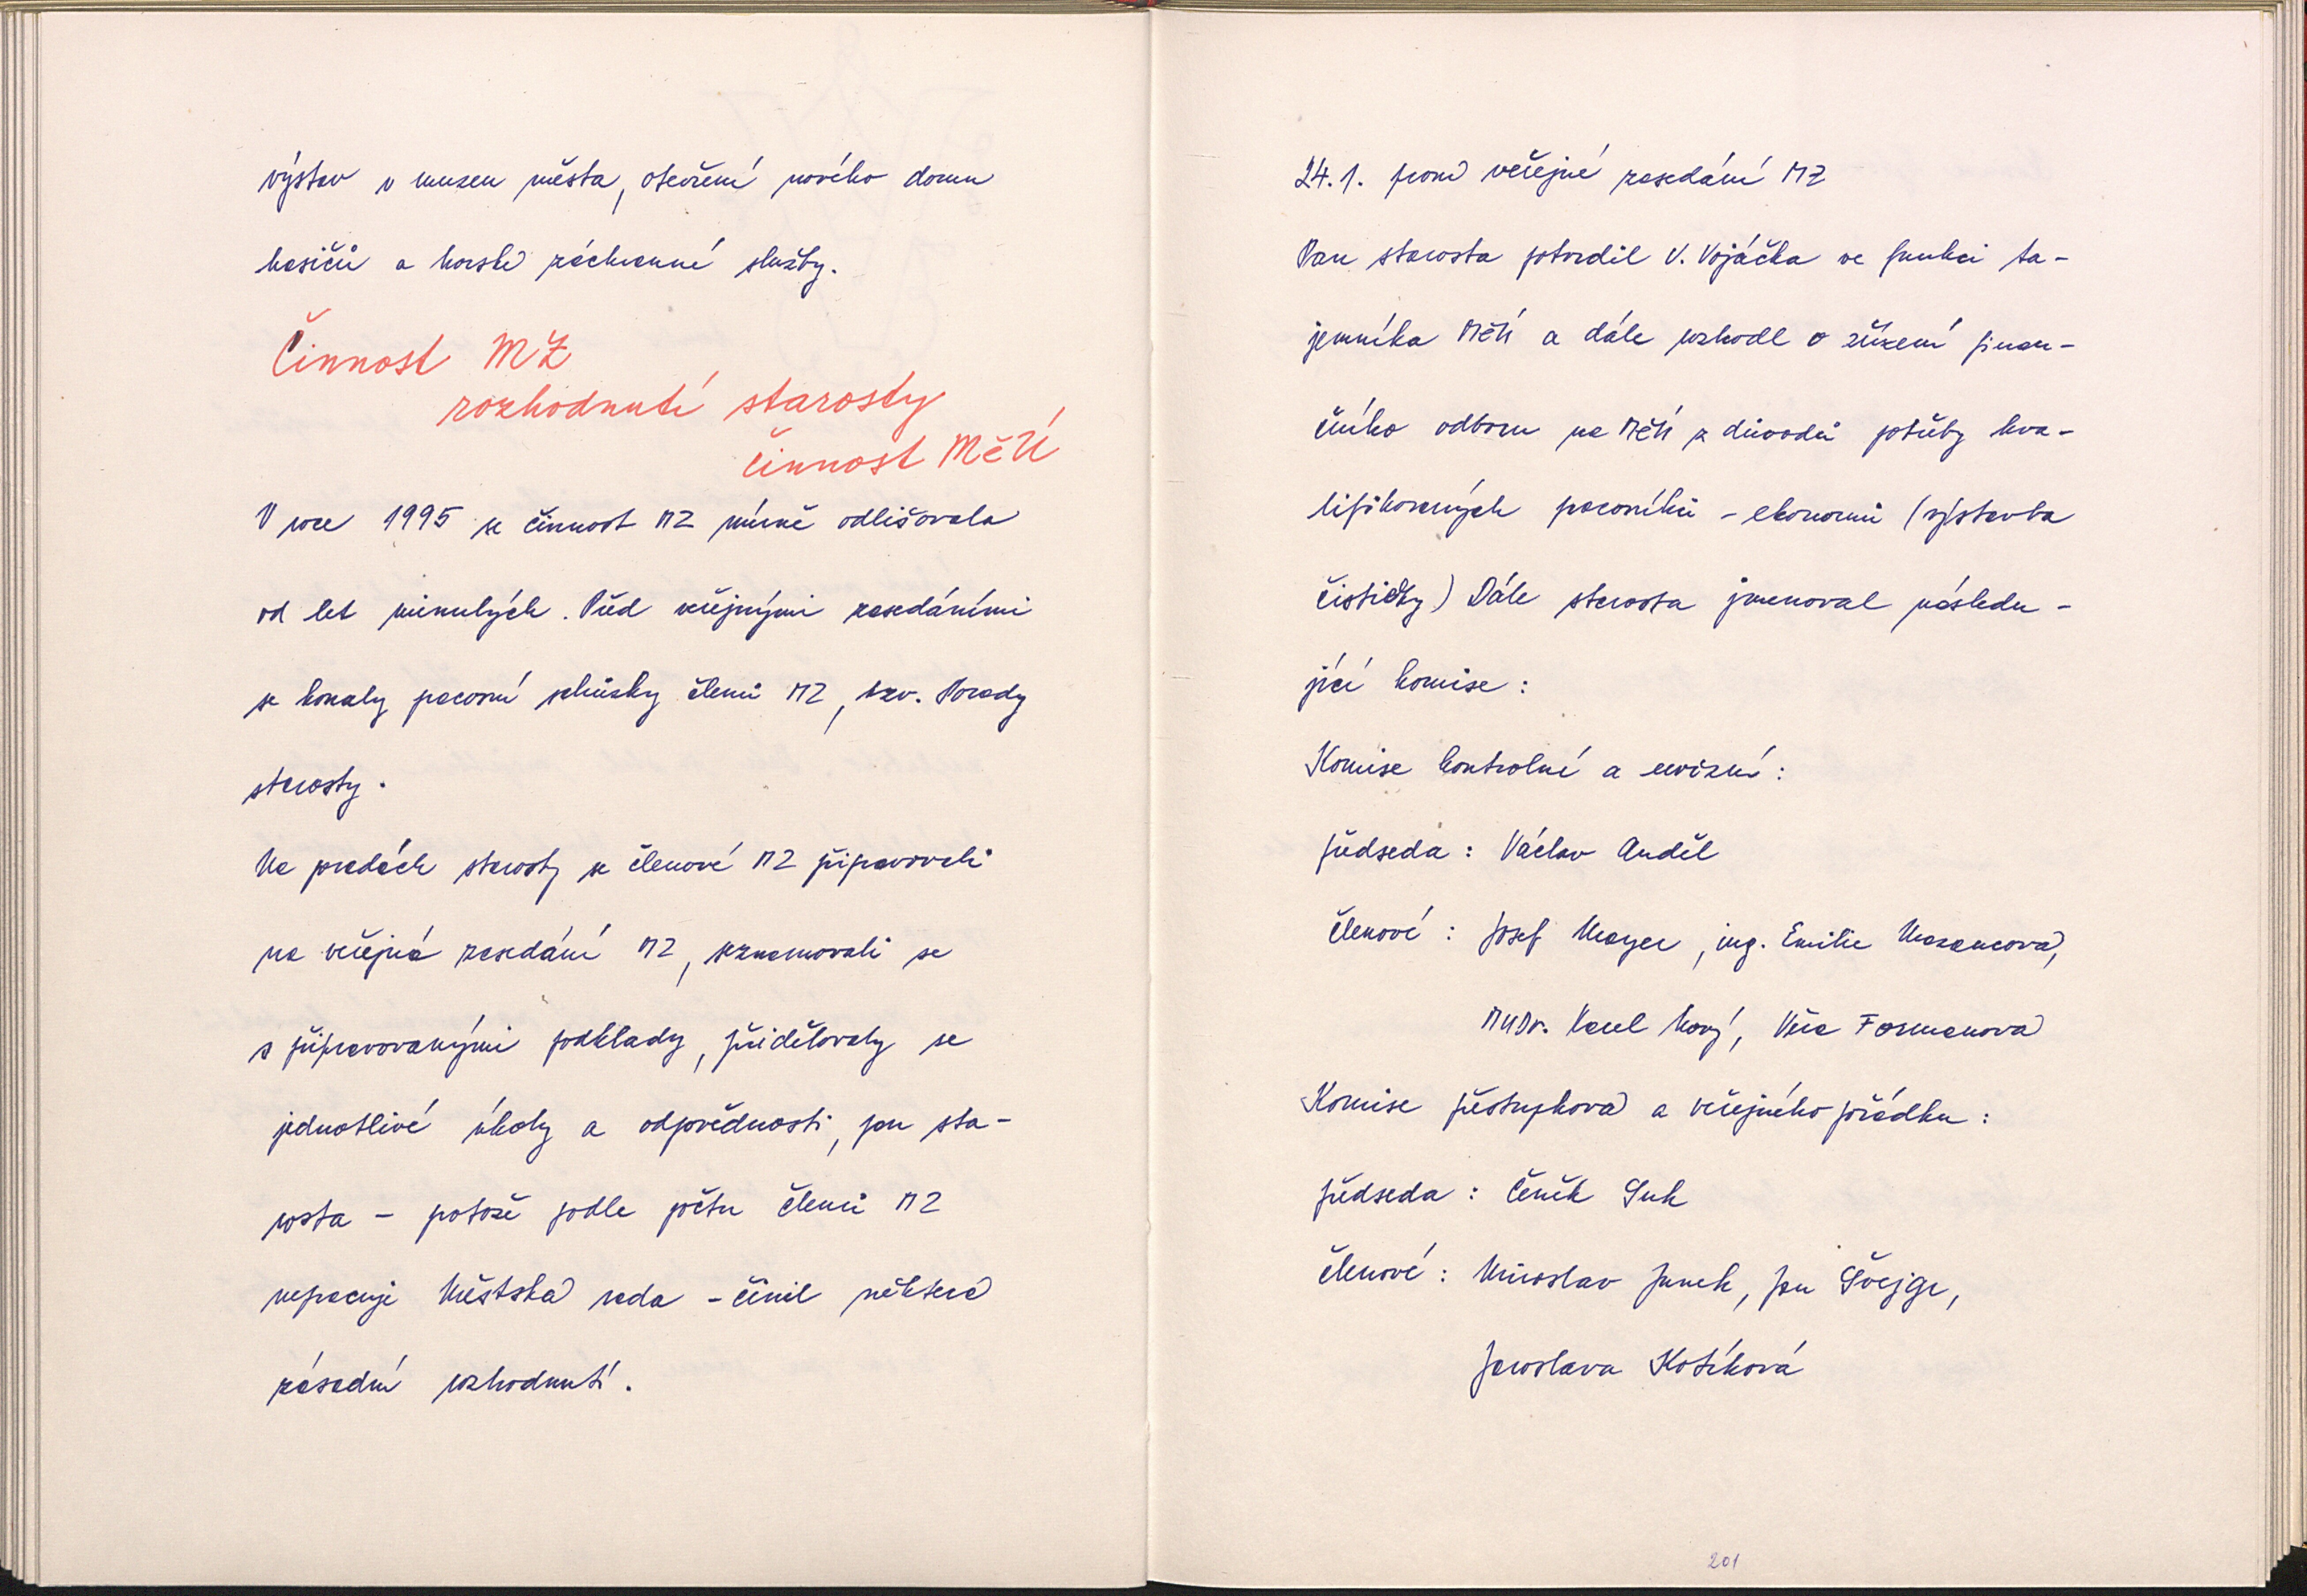 výstav v muzeu města, otevření nového domu
hasičů a horské záchranné služby.
Činnost MZ
rozhodnutí starosty
činnost MěÚ
V roce 1995 se činnost MZ mírně odlišovala
od let minulých. Před veřejnými zasedáními
se konaly pracovní schůzky členů MZ, tzv. Porady
starosty.
Na poradách starosty se členové MZ připravovali
na veřejná zasedání MZ, seznamovali se
s připravovanými podklady, přidělovaly se
jednotlivé úkoly a odpovědnosti, pan sta-
rosta - protože podle počtu členů MZ
nepracuje Městská rada - činil některá
zásadní rozhodnutí.
24.1. první veřejné zasedání MZ
Pan starosta potvrdil V. Vojáčka ve funkci ta-
jemníka MěÚ a dále rozhodl o zřízení finan-
čního odboru na MěÚ z důvodů potřeby kva-
lifikovaných pracovníků - ekonomů (výstavba
čističky) Dále starosta jmenoval následu-
jící komise:
Komise kontrolní a revizní:
předseda: Václav Anděl
členové: Josef Mayer, ing. Emilie Mazancová,
MUDr. Karel Nový, Věra Formanová
Komise přestupková a veřejného pořádku:
předseda: Čeněk Suk
členové: Miroslav Junek, Jan Švejgr,
Jaroslava Kotíková
201